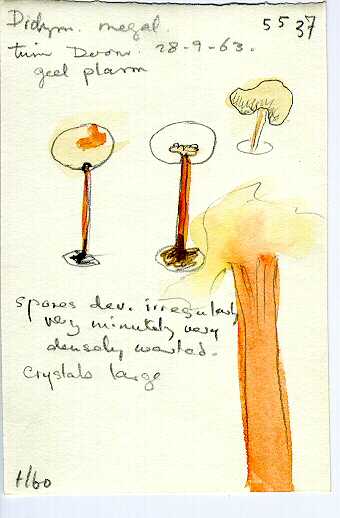 Didym. megal.
5537
tuin Doorw. 28-9-63.
geel plasm
spores dev. irregularly
very minutely very
densely warted.
Crystals large